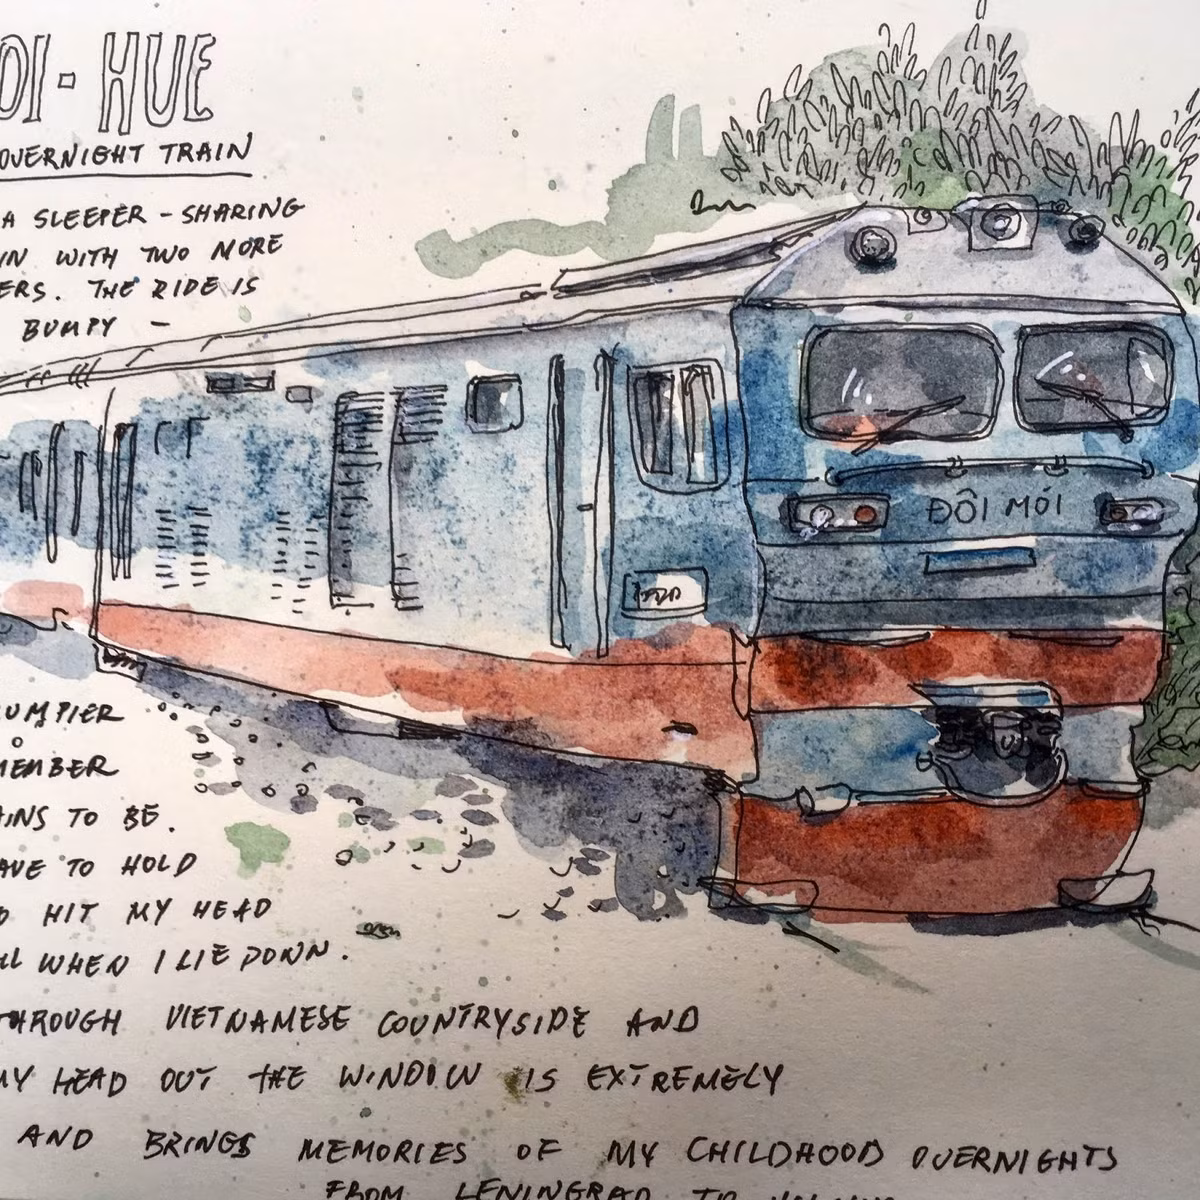 OI - HUE
OVERNIGHT TRAIN
A SLEEPER - SHARING
IN WITH TWO MORE
ERS. THE RIDE IS
BUMPY -
ĐỔI MỚI
UMPIER
MEMBER
AINS TO BE.
AVE TO HOLD
HIT MY HEAD
LL WHEN I LIE DOWN.
THROUGH VIETNAMESE COUNTRYSIDE AND
MY HEAD OUT THE WINDOW IS EXTREMELY
AND BRINGS MEMORIES OF MY CHILDHOOD OVERNIGHTS
FROM LENINGRAD TO